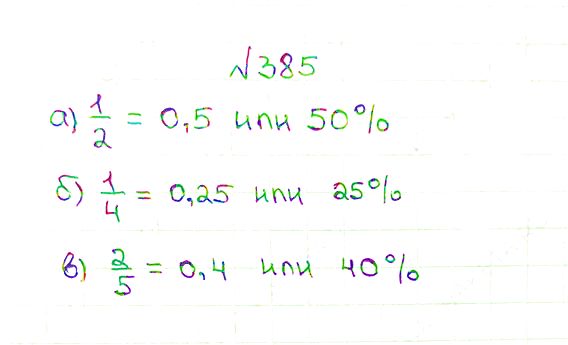 №385
а) 1/2 = 0,5 или 50%
б) 1/4 = 0,25 или 25%
в) 2/5 = 0,4 или 40%